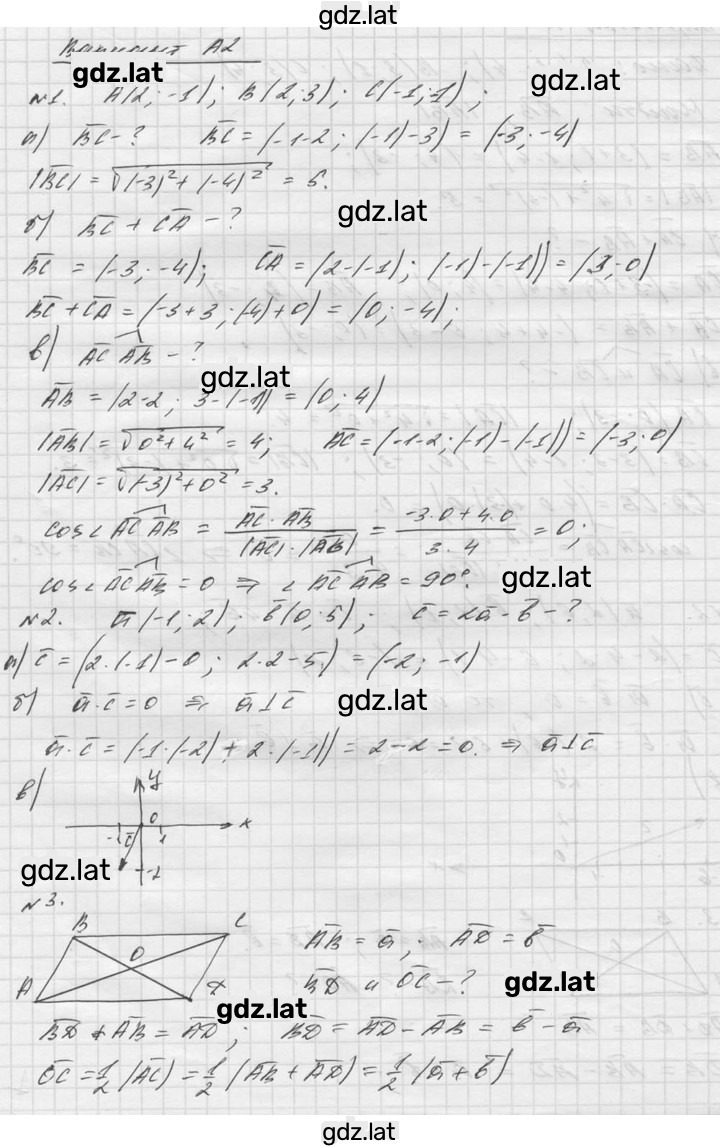 gdz.lat
Вариант А2
gdz.lat
gdz.lat
№1. A(2; -1); B(2; 3); C(-1; -1);
а) BC̅ - ? BC̅ = (-1-2; (-1)-3) = (-3; -4)
|BC̅| = √((-3)² + (-4)²) = 5.
gdz.lat
б) BC̅ + CA̅ - ?
BC̅ = (-3; -4); CA̅ = (2-(-1); (-1)-(-1)) = (3; 0)
BC̅ + CA̅ = (-3+3; (-4)+0) = (0; -4);
в) AC̅ AB̅ - ?
gdz.lat
AB̅ = (2-2; 3-(-1)) = (0; 4)
|AB̅| = √(0² + 4²) = 4; AC̅ = (-1-2; (-1)-(-1)) = (-3; 0)
|AC̅| = √((-3)² + 0²) = 3.
cos∠ AC̅ AB̅ = (AC̅ · AB̅)/(|AC̅| · |AB̅|) = (-3·0+4·0)/(3·4) = 0;
cos∠ AC̅ AB̅ = 0 ⇒ ∠ AC̅ AB̅ = 90°.
gdz.lat
№2. a̅(-1; 2); b̅(0; 5); c̅ = 2a̅ - b̅ - ?
а) c̅ = (2·(-1)-0; 2·2-5) = (-2; -1)
б) a̅·c̅ = 0 ⇒ a̅⊥c̅
gdz.lat
a̅·c̅ = (-1·(-2) + 2·(-1)) = 2-2 = 0. ⇒ a̅⊥c̅
в)
y
0 x
-2 c̅ 1
-2
gdz.lat
№3.
B C
O
A D
AB̅ = a̅; AD̅ = b̅
BD̅ и OC̅ - ?
gdz.lat
gdz.lat
BD̅ + AB̅ = AD̅; BD̅ = AD̅ - AB̅ = b̅ - a̅
OC̅ = 1/2 (AC̅) = 1/2 (AB̅ + AD̅) = 1/2 (a̅ + b̅)
gdz.lat